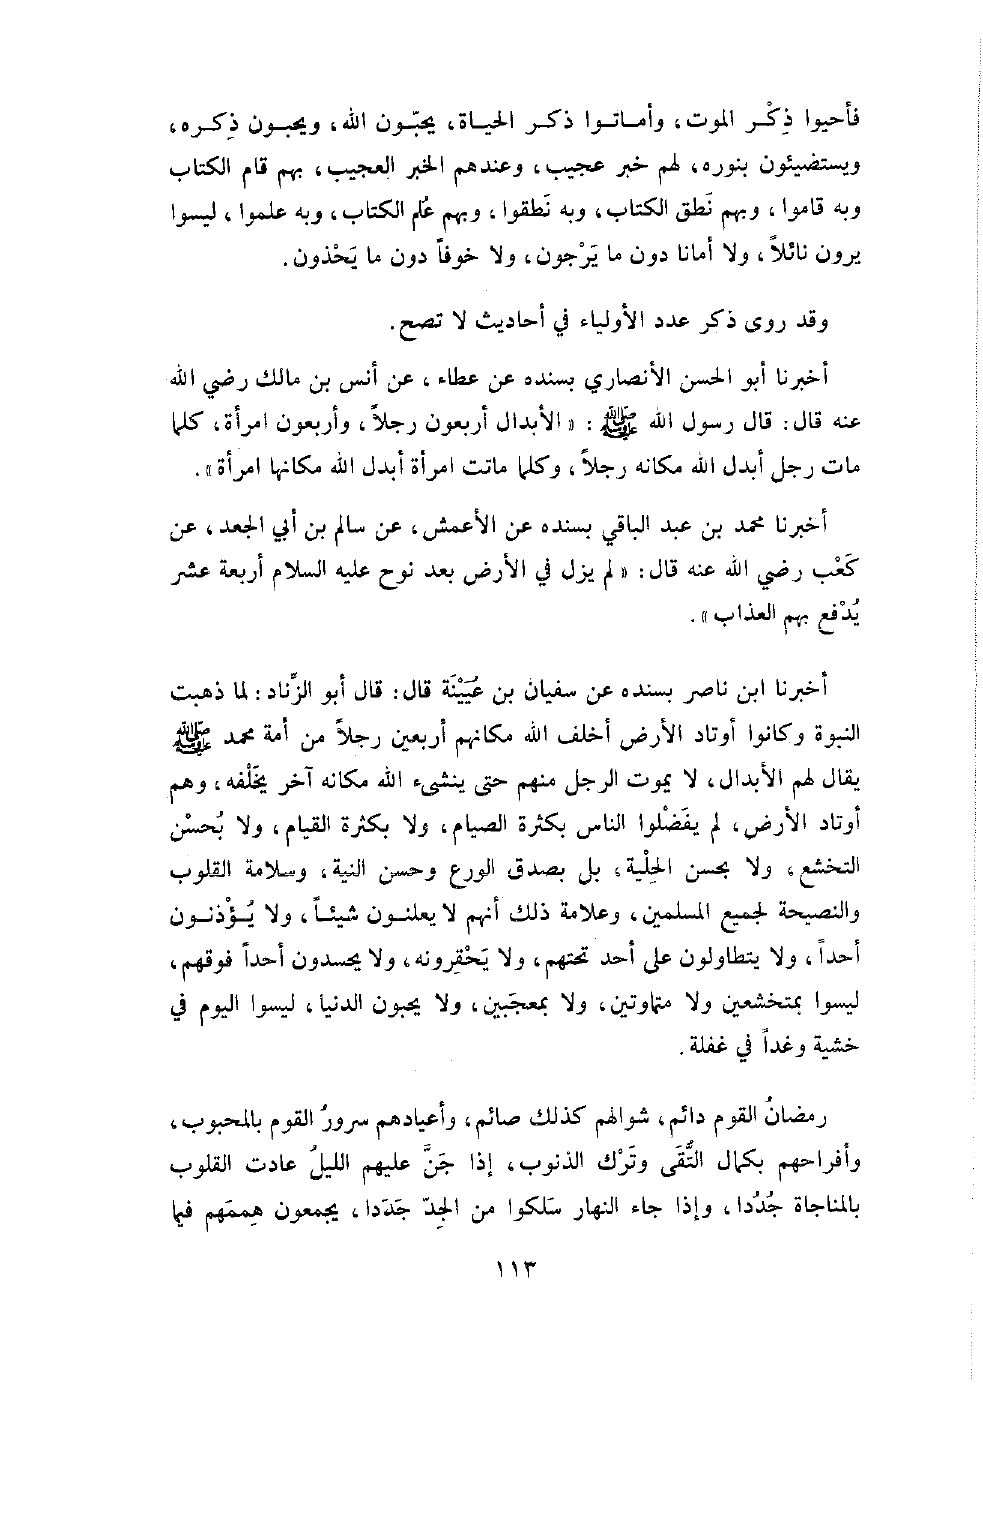 فأحيوا ذِكْر الموت، وأمـاتـوا ذكـر الحيـاة، يحبّـون الله، ويحبـون ذِكـره،
ويستضيئون بنوره، لهم خبر عجيب، وعندهم الخبر العجيب، بهم قام الكتاب
وبه قاموا، وبهم نَطق الكتاب، وبه نَطقوا، وبهم عُلم الكتاب، وبه علموا، ليسوا
يرون نائلاً، ولا أمانا دون ما يَرْجون، ولا خوفاً دون ما يَحْذون.
وقد روى ذكر عدد الأولياء في أحاديث لا تصح.
أخبرنا أبو الحسن الأنصاري بسنده عن عطاء، عن أنس بن مالك رضي الله
عنه قال: قال رسول الله ﷺ: «الأبدال أربعون رجلاً، وأربعون امرأة، كلما
مات رجل أبدل الله مكانه رجلاً، وكلما ماتت امرأة أبدل الله مكانها امرأة».
أخبرنا محمد بن عبد الباقي بسنده عن الأعمش، عن سالم بن أبي الجعد، عن
كَعْب رضي الله عنه قال: «لم يزل في الأرض بعد نوح عليه السلام أربعة عشر
يُدْفع بهم العذاب».
أخبرنا ابن ناصر بسنده عن سفيان بن عُيَيْنَة قال: قال أبو الزِّناد: لما ذهبت
النبوة وكانوا أوتاد الأرض أخلف الله مكانهم أربعين رجلاً من أمة محمد ﷺ
يقال لهم الأبدال، لا يموت الرجل منهم حتى ينشىء الله مكانه آخر يخَلْفه، وهم
أوتاد الأرض، لم يفَضْلوا الناس بكثرة الصيام، ولا بكثرة القيام، ولا بُحسْن
التخشع، ولا بحسن الحِلْية، بل بصدق الورع وحسن النية، وسلامة القلوب
والنصيحة لجميع المسلمين، وعلامة ذلك أنهم لا يعلنـون شيئـاً، ولا يُـؤْذنـون
أحداً، ولا يتطاولون على أحد تحتهم، ولا يَحْقِرونه، ولا يحسدون أحداً فوقهم،
ليسوا بمتخشعين ولا متماوتين، ولا بمعجَبين، ولا يحبون الدنيا، ليسوا اليوم في
خشية وغداً في غفلة.
رمضانُ القوم دائم، شوالهم كذلك صائم، وأعيادهم سرورُ القوم بالمحبوب،
وأفراحهم بكمال التُّقَى وتَرْك الذنوب، إذا جَنَّ عليهم الليلُ عادت القلوب
بالمناجاة جُدُدا، وإذا جاء النهار سَلكوا من الجِدّ جَدَدا، يجمعون هِممَهم فيما
١١٣